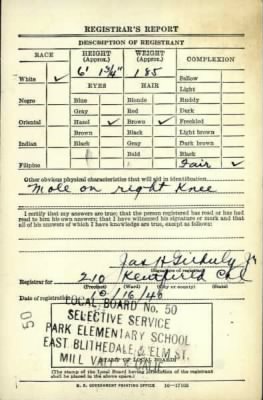 REGISTRAR'S REPORT
DESCRIPTION OF REGISTRANT
RACE HEIGHT (Approx.) WEIGHT (Approx.) COMPLEXION
6' 185
White ✓ EYES HAIR Sallow
Light
Negro Blue Blonde Ruddy
Gray Red Dark
Oriental Hazel ✓ Brown ✓ Freckled
Brown Black Light brown
Indian Black Gray Dark brown
Bald Black
Filipino Fair ✓
Other obvious physical characteristics that will aid in identification
Mole on right Knee
I certify that my answers are true; that the person registered has read or has had
read to him his own answers; that I have witnessed his signature or mark and that all
of his answers of which I have knowledge are true, except as follows:
Jas H Jr
Registrar for 210 Kentfield Cal
(Precinct) (Ward) (City or county) (State)
Date of registration 10/16/40
LOCAL BOARD No. 50
SELECTIVE SERVICE
PARK ELEMENTARY SCHOOL
EAST BLITHEDALE & ELM ST.
MILL VALLEY, CALIF.
50
(STAMP OF LOCAL BOARD)
(The stamp of the Local Board having jurisdiction of the registrant
shall be placed in the above space.)
U. S. GOVERNMENT PRINTING OFFICE 16-17105